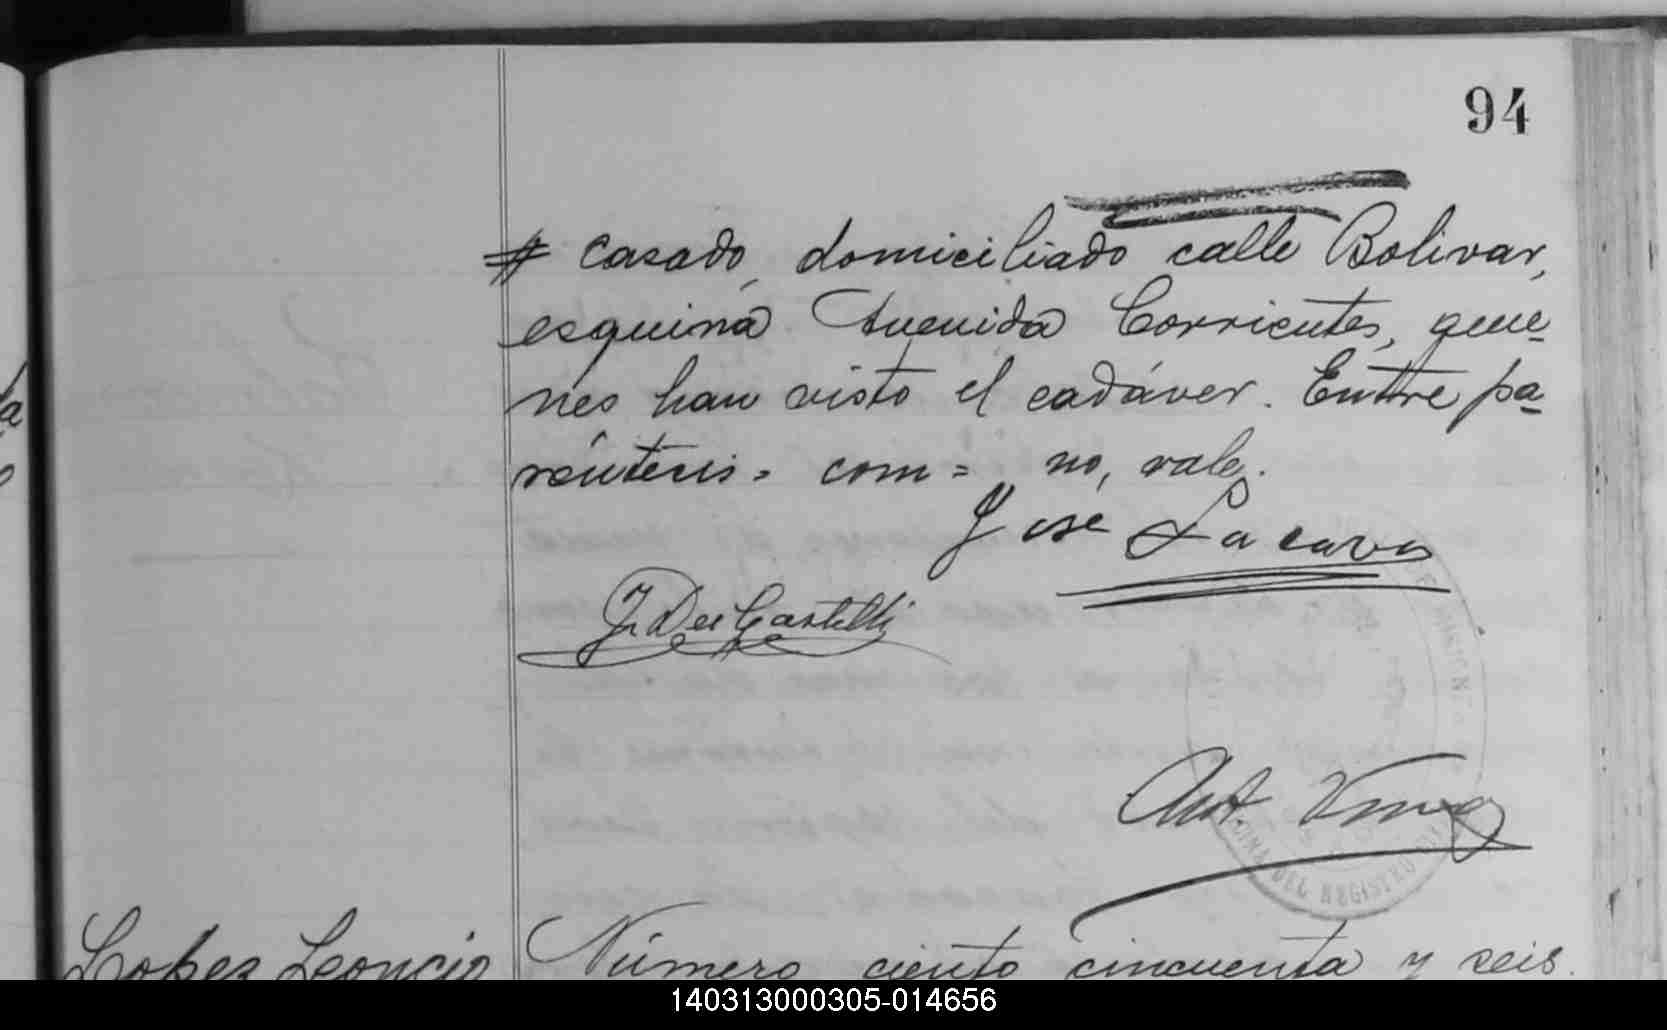 94
# casado, domiciliado calle Bolivar,
esquina Avenida Corrientes, quie
nes han visto el cadáver. Entre pa
réntesis = com = no, vale.
José Lacava
J. Dei Castelli
Ant.
DEL REGISTRO
Lopez Leoncio
Número ciento cincuenta y seis.
140313000305-014656